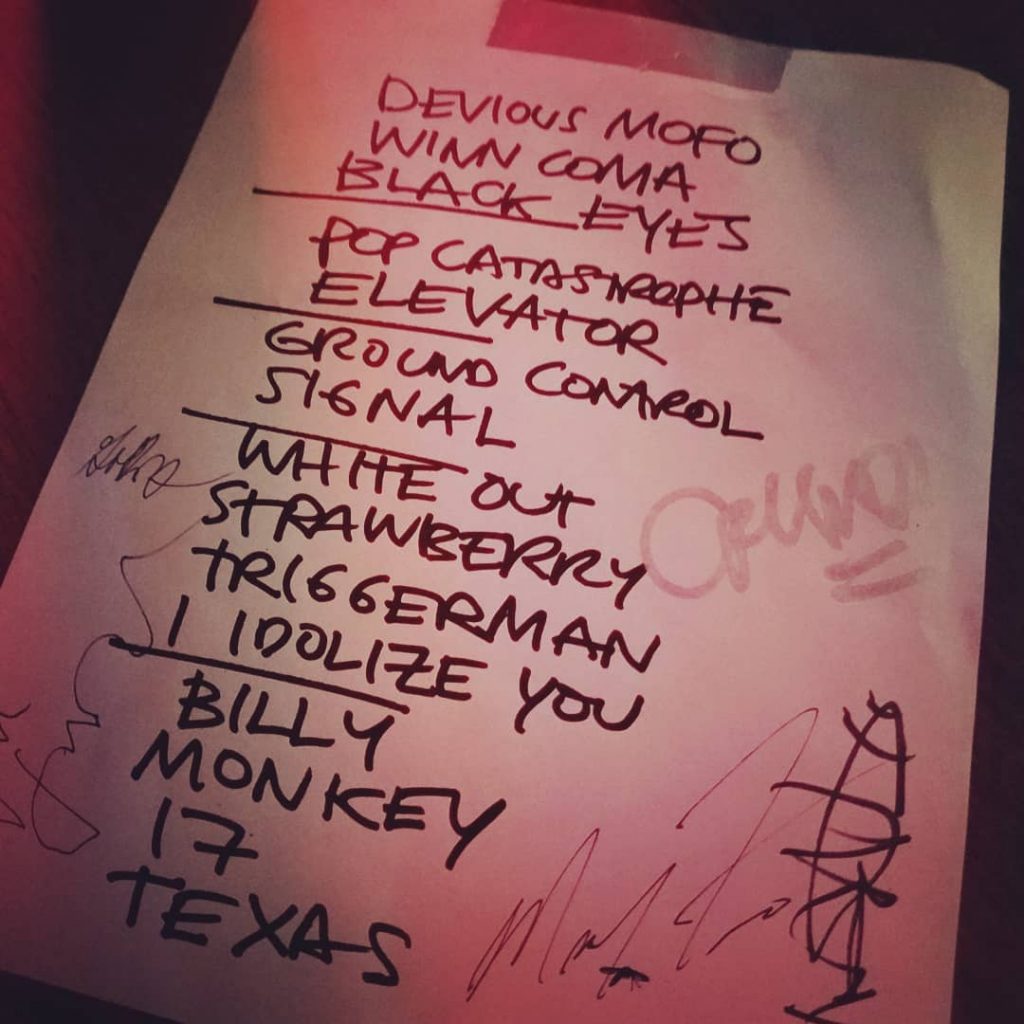 DEVIOUS MOFO
WINN COMA
BLACK EYES
POP CATASTROPHE
ELEVATOR
GROUND CONTROL
SIGNAL
WHITE OUT
STRAWBERRY
TRIGGERMAN
I IDOLIZE YOU
BILLY
MONKEY
17
TEXAS